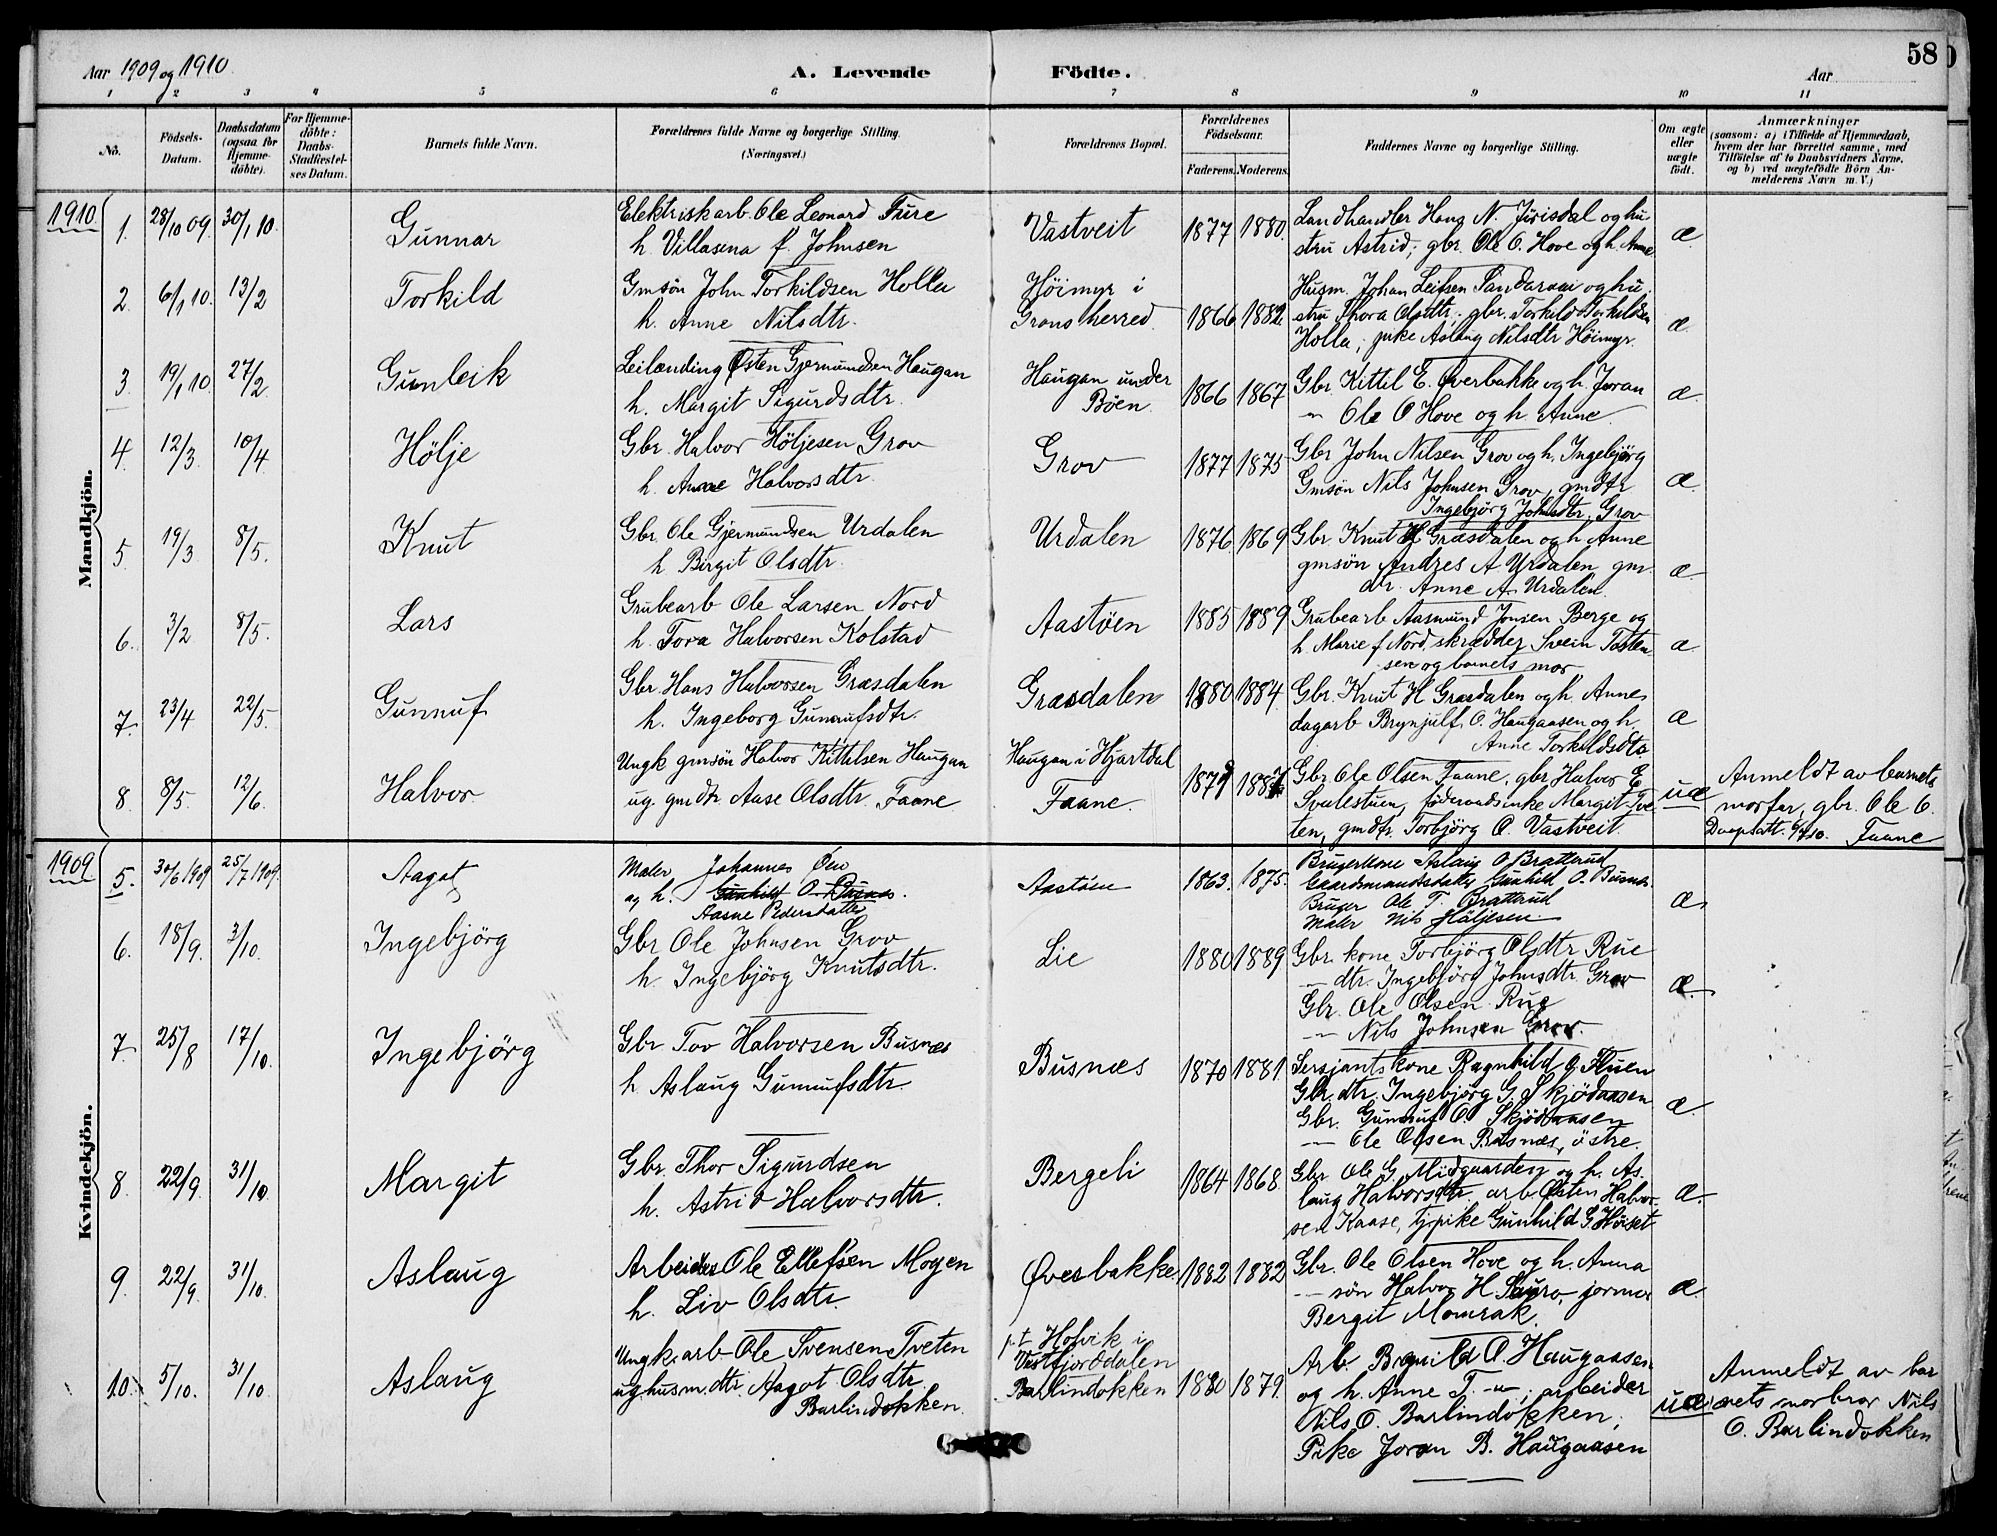 Aar 1909 og 1910. A. Levende Födte. Aar 58
1 2 3 4 5 6 7 8 9 10 11
No. Födsels-Datum. Daabsdatum (ogsaa for Hjemme-döbte). For Hjemme-döbte: Daabs-Stadfæstel-ses Datum. Barnets fulde Navn. Forældrenes fulde Navne og borgerlige Stilling. (Næringsvei.) Forældrenes Bopæl. Forældrenes Födselsaar. Faderens. Moderens. Faddernes Navne og borgerlige Stilling. Om ægte eller uægte födt. Anmærkninger (saasom: a) i Tilfælde af Hjemmedaab, hvem der har forrettet samme, med Tilföielse af to Daabsvidners Navne, og b) ved uægtefödte Börn An-melderens Navn m. V.)
Mandkjön.
1910
1. 28/10 09. 30/1 10. Gunnar
Elektriskarb. Ole Leonard Ture
h. Villasena f. Johnsen
Vastveit 1877 1880.
Landhandler Hans N. Jörisdal og hu-
stru Astrid, gbr. Ole O. Hove og h. Anne
æ
2. 6/1 10. 13/2 Torkild
Gmsön John Torkildsen Holla
h. Anne Nilsdtr.
Höimyr i
Gransherred. 1866 1882.
Husm. Johan Leifsen Sandaraai og hu-
stru Thora Olsdtr., gbr. Torkild Torkildsen
Holla, pike Aslaug Nilsdtr Höimyr.
æ
3. 19/1 10. 27/2. Gunleik
Leilænding Østen Gjermundsen Haugan
h. Margit Sigurdsdtr.
Haugan under
Böen. 1866 1867
Gbr. Kittil E. Øverbakke og h. Joran
-"- Ole O Hove og h. Anne
æ
4. 12/3. 10/4 Hölje
Gbr. Halvor Höljesen Grov
h. Anne Halvorsdtr.
Grov 1877 1875
Gbr John Nilsen Grov og h. Ingebjörg
Gmsön Nils Johnsen Grov, gmdtr
Ingebjörg Johnsdtr. Grov
æ
5 19/3 8/5. Knut
Gbr. Ole Gjermundsen Urdalen
h Birgit Olsdtr.
Urdalen 1876 1869
Gbr Knut H Græsdalen og h Anne
gmsön Andres A Urdalen, gm-
dtr. Anne A. Urdalen
æ
6. 3/2 8/5. Lars
Grubearb Ole Larsen Nord
h. Tora Halvorsen Kolstad
Aastöen 1885 1889
Grubearb Aasmund Jonsen Berge og
h. Marie f. Nord, skrædder Svein Tosten-
sen og barnets mor
æ
7. 23/4 22/5. Gunnuf
Gbr. Hans Halvorsen Græsdalen
h. Ingeborg Gunnufsdtr.
Græsdalen 1880 1884.
Gbr. Knut H Græsdalen og h. Anne
dagarb Brynjulf O. Haugaasen og h.
Anne Torkildsdtr
æ
8. 8/5. 12/6. Halvor
Ungk gmsön Halvor Kittilsen Haugan
ug. gmdtr Aase Olsdtr. Faane
Haugan i Hjartdal
Faane. 1887
Gbr. Ole Olsen Faane, gbr. Halvor E
Svalestuen, föderaadsenke Margit Tve-
ten, gmdtr. Torbjörg O. Vastveit
uæ
Anmeldt av barnets
morfar, gbr. Ole O.
Daapsatt. Faane
Kvindekjön.
1909
5. 30/6 1909 25/7 1909. Aagot
Maler Johannes Öen
og h. Gunhild O. Busnes.
Aasne Pedersdatter
Aastöen 1863. 1875.
Brugerkone Aslaug O Bratterud
Gaardmandsdatter Gunhild O. Busnes
Bruger Ole T. Bratterud
Maler Nils Höljesen
æ
6. 18/9. 3/10. Ingebjörg
Gbr Ole Johnsen Grov
h. Ingebjörg Knutsdtr.
Lie 1880 1889
Gbr. kone Torbjörg Olsdtr Rue
-"- dtr. Ingebjörg Johnsdtr. Grov
Gbr. Ole Olsen Rue
-"- Nils Johnsen Grov.
æ
7 25/8 17/10. Ingebjörg
Gbr Tov Halvorsen Busnæs
h Aslaug Gunnufsdtr.
Busnæs 1870 1881
Sersjantskone Ragnhild O. Huen
Gbr. dtr. Ingebjörg G. Skjödaasen
Gbr. Gunnuf O. Skjödaasen
-"- Ole Olsen Busnæs, östre.
æ
8. 22/9. 31/10. Margit
Gbr. Thor Sigurdsen
h. Astrid Halvorsdtr.
Bergeli 1864 1868
Gbr Ole G. Midgaarden og h. As-
laug Halvorsdtr. arb. Østen Halvor-
sen Kaase, tjpike Gunhild G Höiset
æ.
9. 22/9. 31/10. Aslaug
Arbeider Ole Ellefsen Mogen
h. Liv Olsdtr.
Øverbakke 1882 1882
Gbr. Ole Olsen Hove og h. Anna
-"- sön Halvor H. Sauro, jormor
Bergit Momrak.
æ
10. 5/10. 31/10. Aslaug
Ungk. arb. Ole Svensen Tveten
ug husm. dtr. Aagot Olsdtr
Barlindokken.
p.t. Holvik i
Vestfjorddalen
Barlindokken 1880 1879.
Arb O. Haugaasen
og h. Anne T. -"-, arbeider
Nils O. Barlindokken,
Pike Joran B. Haugaasen
uæ
Anmeldt av bar-
nets morbror Nils
O. Barlindokken